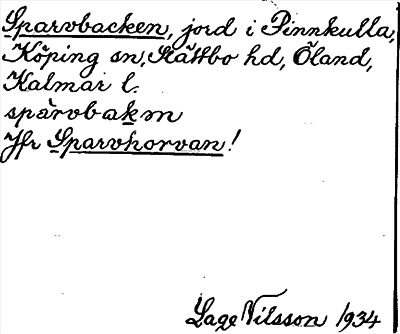 Sparvbacken, jord i Pinnkulla,
Köping sn, Slättbo hd, Öland,
Kalmar l.
sparvbakm
Jfr Sparvhorvan!
Lage Nilsson 1934